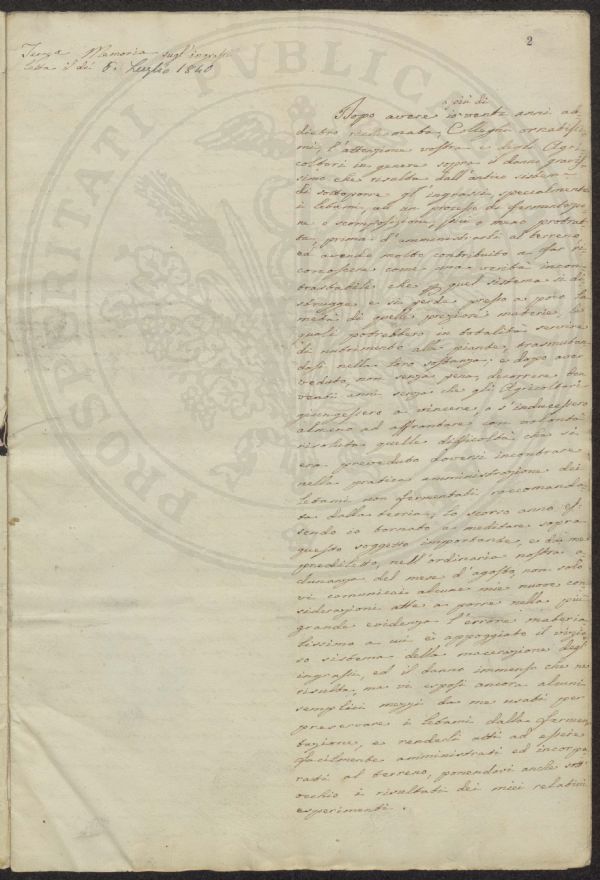 2
Terza Memoria sugl'ingrassi
letta il dì 5. Luglio 1840
e più di
Dopo avere io venti anni ad
dietro richiamata, Colleghi ornatissi
mi, l'attenzione vostra e degli Agri
coltori in genere sopra il danno gravis
simo che risulta dall'antico sistema
di sottoporre gl'ingrassi, specialmente
i letami, ad un processo di fermentazio
ne o scomposizione, più o meno protrat
ta, prima d'amministrarli al terreno,
ed avendo molto contribuito a far ri
conoscere come una verità incon
trastabile che per quel sistema si di
strugge e si perde presso a poco la
metà di quelle preziose materie, le
quali potrebbero in totalità servire
di nutrimento alle piante, trasmutan
dosi nella loro sostanza; e dopo aver
veduto, non senza pena, decorrere ben
venti anni senza che gli Agricoltori
giungessero a vincere, o s'inducessero
almeno ad affrontare con volontà
risoluta quelle difficoltà, che si
era preveduto doversi incontrare
nella pratica amministrazione dei
letami non fermentati raccomanda
ta dalla teoria, lo scorso anno es
sendo io tornato a meditare sopra
questo soggetto importante, e da me
prediletto, nell'ordinaria nostra a
dunanza del mese d'agosto, non solo
vi comunicai alcune mie nuove con
siderazioni atte a porre nella più
grande evidenza l'errore materia
lissimo a cui è appoggiato il vizio
so sistema della macerazione degl'
ingrassi, ed il danno immenso che ne
risulta, ma vi esposi ancora alcuni
semplici mezzi da me usati per
preservare i letami dalla fermen
tazione, e renderli atti ad essere
facilmente amministrati ed incorpo
rati al terreno, ponendovi anche sott'
occhio i risultati dei miei relativi
esperimenti.
PROSPERITATI PUBLICAE